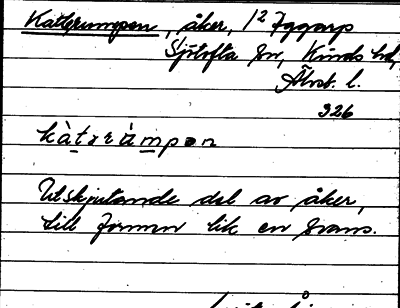 Kattrumpan, åker, 1² Iggarp
Sjötofta sn, Kinds hd,
Älvsb. l.
326
kàtəràmpən
Utskjutande del av åker,
till formen lik en svans.